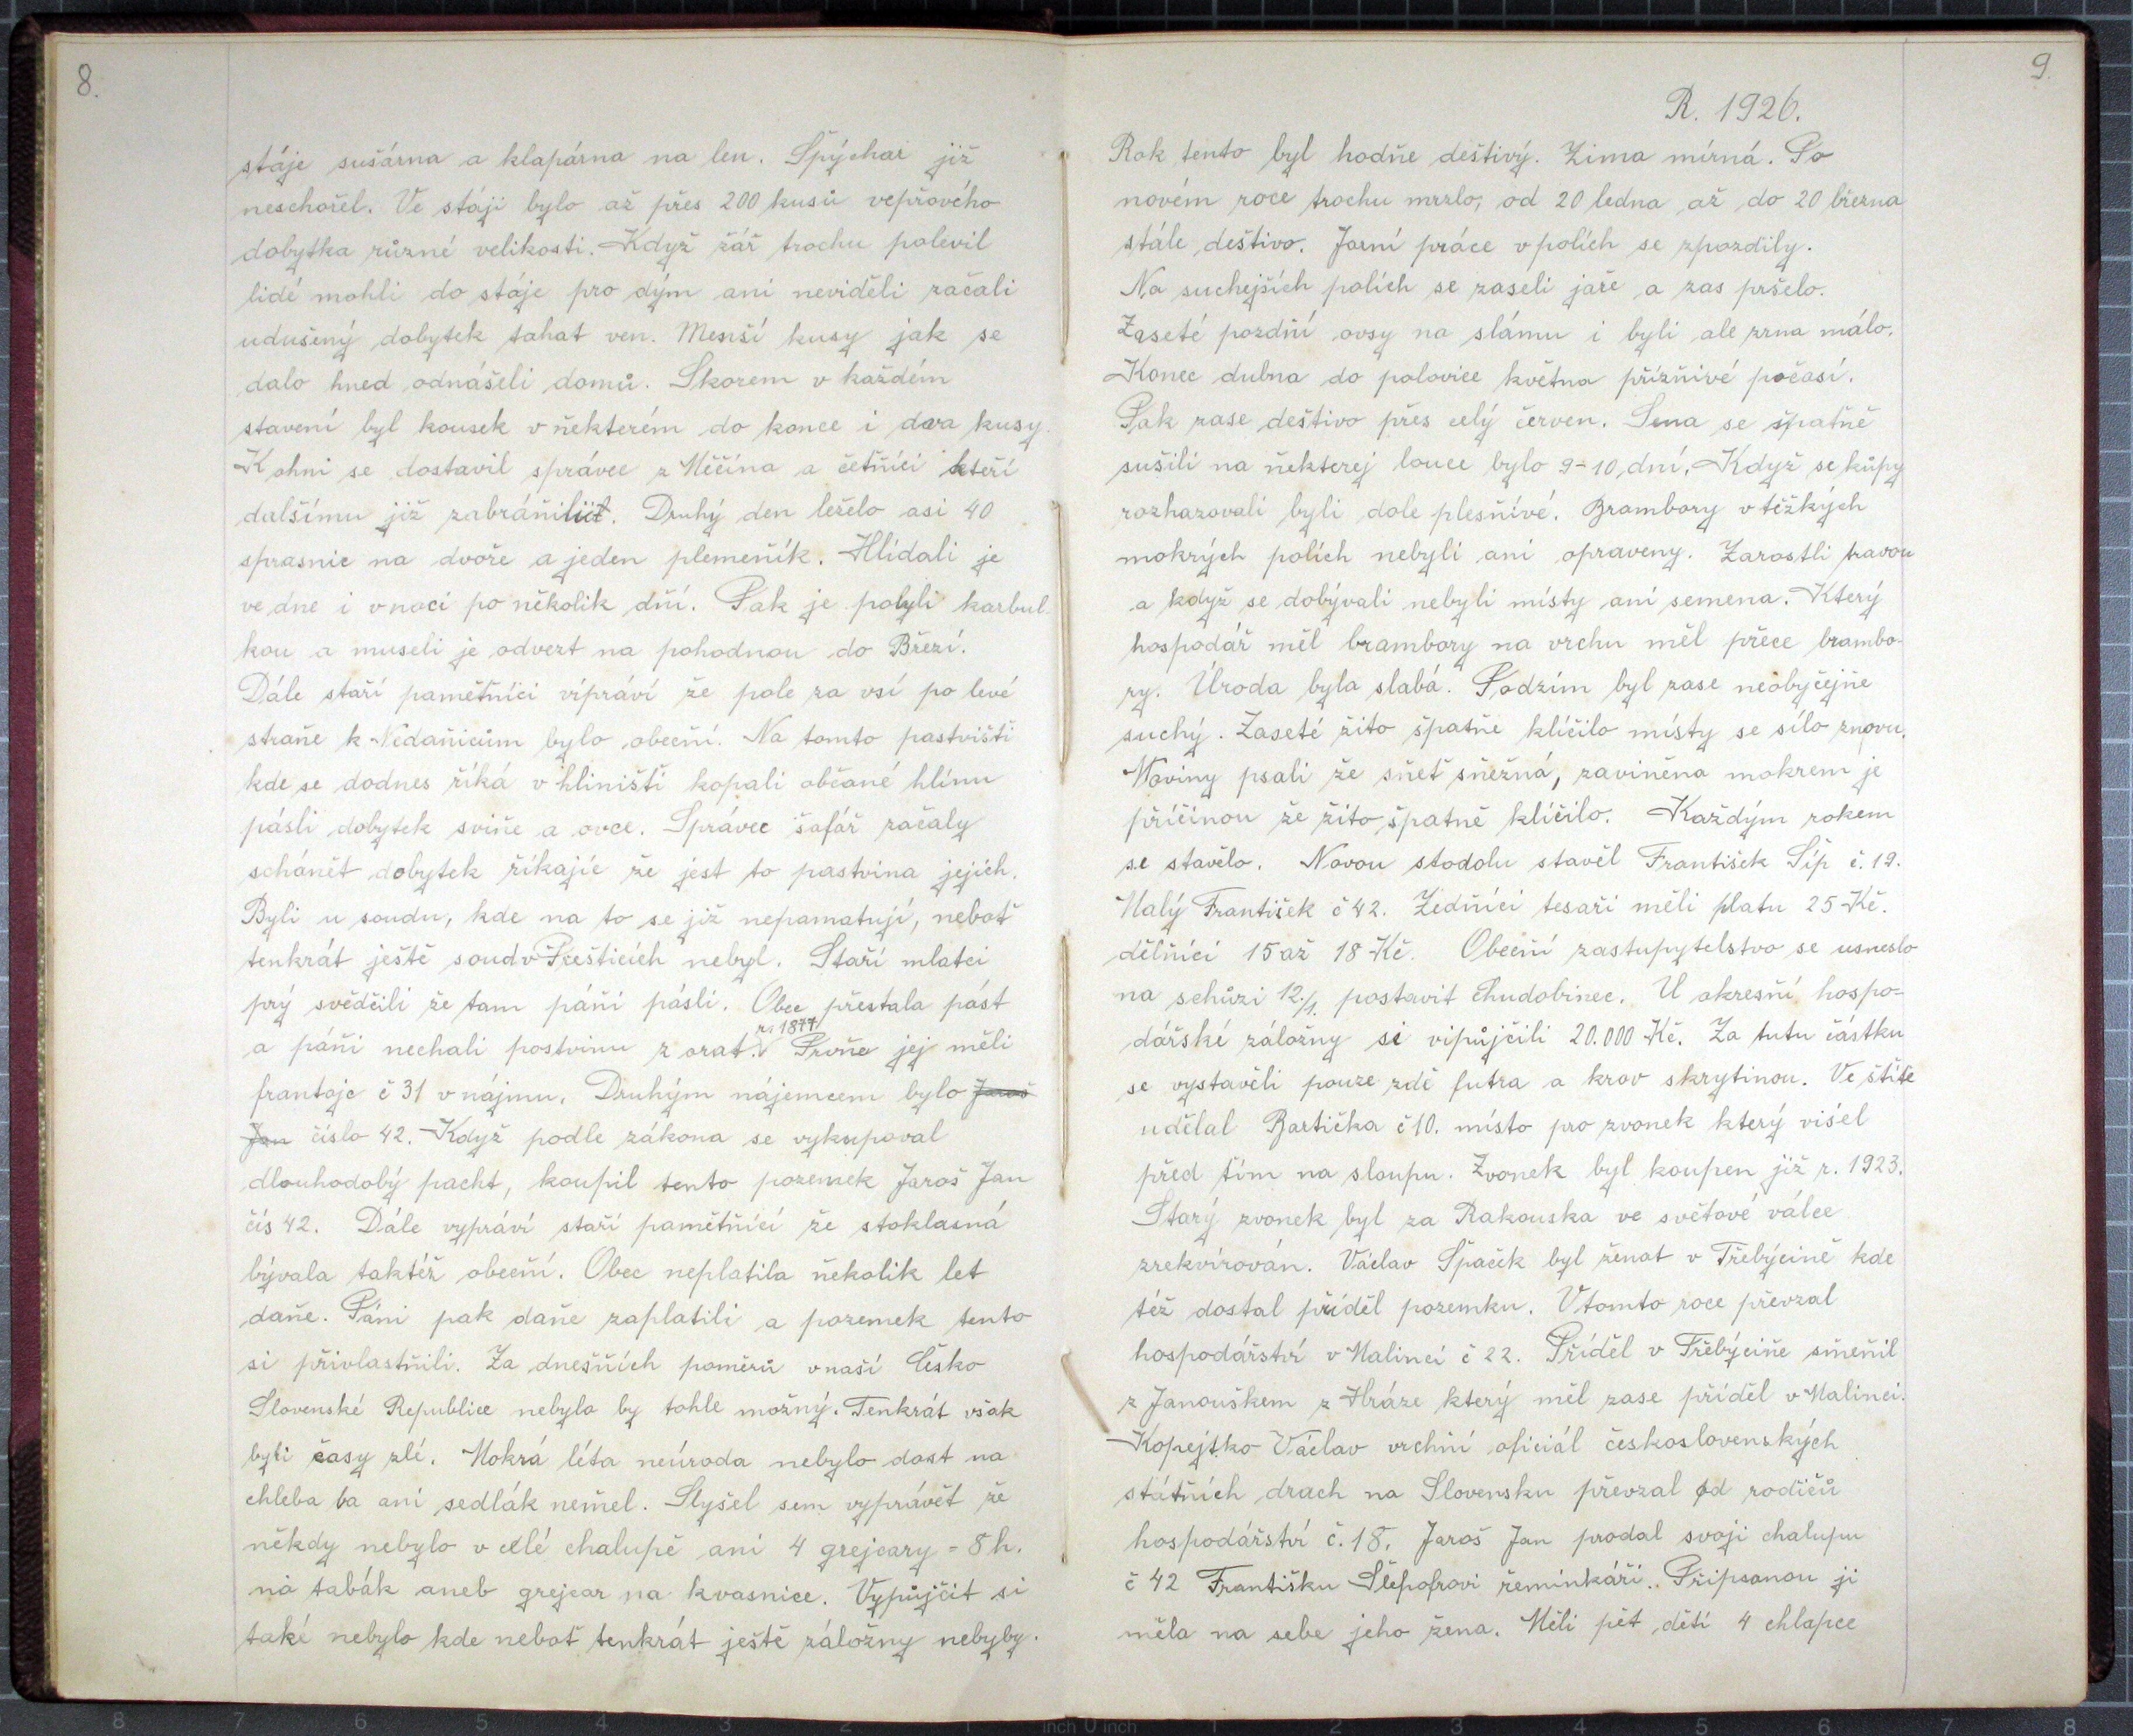 8.
stáje sušárna a klapárna na len. Špýchar již
neschořel. Ve stáji bylo až přes 200 kusů vepřového
dobytka různé velikosti. Když žář trochu polevil
lidé mohli do stáje pro dým ani neviděli začali
udušený dobytek tahat ven. Menší kusy jak se
dalo hned odnášeli domů. Skorem v každém
stavení byl kousek v ňekterém do konce i dva kusy.
K ohni se dostavil správce z Měčína a četňíci kteří
dalšímu již zabráňili. Druhý den leželo asi 40
sprasnic na dvoře a jeden plemeňík. Hlídali je
ve dne i vnoci po několik dňí. Pak je polyli karbul-
kou a museli je odvezt na pohodnou do Březí.
Dále staří pamětňíci vípráví že pole za vsí po levé
straňe k Nedaňicům bylo obecňí. Na tomto pastvišti
kde se dodnes říká v hliništi kopali občané hlínu
pásli dobytek sviňe a ovce. Správce šafář začaly
schánět dobytek říkajíc že jest to pastvina jejich.
Byli u soudu, kde na to se již nepamatují, neboť
tenkrát ještě soud v Přešticích nebyl. Staří mlatci
prý svědčili že tam páňi pásli. Obec přestala pást
a páňi nechali postvinu z orat. r. 1877 Prvňe jej měli
frantoje č 31 v nájmu. Druhým nájemcem bylo Jaroš
Jan číslo 42. Když podle zákona se vykupoval
dlouhodobý pacht, koupil tento pozemek Jaroš Jan
čís 42. Dále vypráví staří pamětňíci že stoklasná
bývala taktéž obecňí. Obec neplatila ňekolik let
daňe. Páni pak daňe zaplatili a pozemek tento
si přivlastňili. Za dnešňích poměrů vnaší Česko
Slovenské Republice nebylo by tohle možný. Tenkrát však
byli časy zlé. Mokrá léta neúroda nebylo dost na
chleba ba ani sedlák neměl. Slyšel sem vyprávět že
někdy nebylo v celé chalupě ani 4 grejcary = 8 h.
na tabák aneb grejcar na kvasnice. Vypůjčit si
také nebylo kde neboť tenkrát ještě záložny nebyby.
9.
R. 1926.
Rok tento byl hodňe deštivý. Zima mírná. Po
novém roce trochu mrzlo, od 20 ledna až do 20 března
stále deštivo. Jarní práce v polích se zpozdily.
Na suchejších polích se zaseli jaře a zas pršelo.
Zaseté pozdňí ovsy na slámu i byli ale zrna málo.
Konec dubna do polovice května přízňivé počasí.
Pak zase deštivo přes celý červen. Sena se špatně
sušili na ňekterej louce bylo 9-10 dní. Když se kůpy
rozhazovali byli dole plesňivé. Brambory v těžkých
mokrých polích nebyli ani opraveny. Zarostli travou
a když se dobývali nebyli místy ani semena. Který
hospodář měl brambory na vrchu měl přece brambo-
ry. Úroda byla slabá. Podzim byl zase neobyčejňe
suchý. Zaseté žito špatňe klíčilo místy se sílo znovu.
Noviny psali že sňeť sňežná, zaviněna mokrem je
příčinou že žito špatně klíčilo. Každým rokem
se stavělo. Novou stodolu stavěl František Šíp č. 19.
Malý František č 42. Zedňíci tesaři měli platu 25 Kč.
dělňíci 15 až 18 Kč. Obecňí zastupytelstvo se usneslo
na schůzi 12./1. postavit chudobinec. U okresňí hospo-
dářské záložny si vipůjčili 20.000 Kč. Za tutu částku
se vystavěli pouze zdě futra a krov skrytinou. Ve štítě
udělal Bartička č 10. místo pro zvonek který visel
před tím na sloupu. Zvonek byl koupen již r. 1923.
Starý zvonek byl za Rakouska ve světové válce
zrekvírován. Václav Špaček byl ženat v Třebýcině kde
též dostal příděl pozemku. V tomto roce převzal
hospodářství v Malinci č 22. Příděl v Třebýciňe směňil
z Janouškem z Hráze který měl zase příděl v Malinci.
Kopejtko Václav vrchňí oficiál československých
státňích drach na Slovensku převzal od rodičů
hospodářství č. 18. Jaroš Jan prodal svoji chalupu
č 42 Františku Šlepofrovi řeminkáři. Připsanou ji
měla na sebe jeho žena. Měli pět dětí 4 chlapce